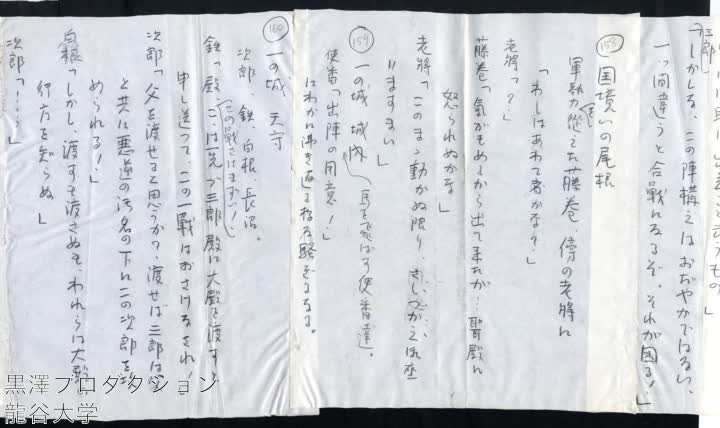 三郎
「しかし、この陣構えは、おだやかではない、
一つ間違うと合戦になるぞ。それが困る!」
158
国境いの尾根
軍勢を従えた藤巻、傍の老将に
「わしはあわて者かな?」
老将「?」
藤巻「気がもめるから出て来たが…聟殿に
怒られぬかな」
老将「このまゝ動かぬ限り、
いますまい」
159
一の城 城内
馬を飛ばす使番達。
使番「出陣の用意!」
にわかに沸き返る様な騒ぎになる。
160
一の城 天守
次郎、鉄、白根、長沼。
(この戦さはまずい!)
鉄「殿、ここは一先づ三郎殿に大殿を渡すと
申し送って、この一戦はおさけなされ!」
次郎「父を渡せると思うか?、渡せば三郎は父
と共に悪逆の汚名の下にこの次郎を
められる!」
白根「しかし、渡すも渡さぬも、われらは大殿の
行方を知らぬ」
次郎「……」
黒澤プロダクション
龍谷大学